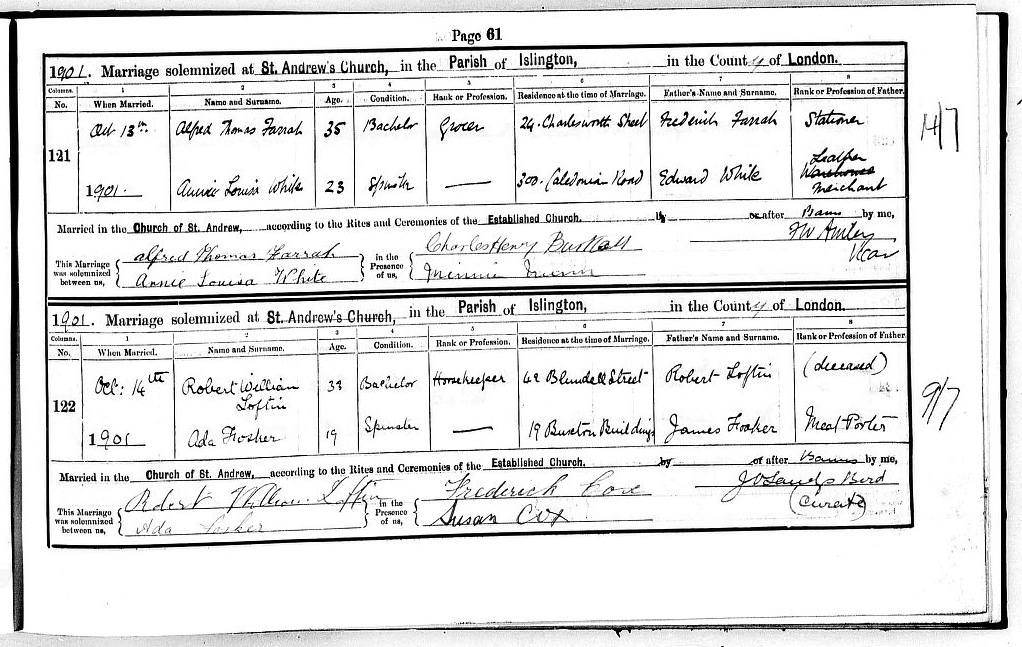 Page 61
1901. Marriage solemnized at St. Andrew's Church, in the Parish of Islington, in the County of London.
Columns. 1 2 3 4 5 6 7 8
No. When Married. Name and Surname. Age. Condition. Rank or Profession. Residence at the time of Marriage. Father's Name and Surname. Rank or Profession of Father.
Oct 13th Alfred Thomas Farrah 35 Bachelor Grocer 24 Charlesworth Street Frederick Farrah Stationer
121
1901. Annie Louisa White 23 Spinster — 300 Caledonian Road Edward White Leather Warehouse Merchant
14/7
Married in the Church of St. Andrew, according to the Rites and Ceremonies of the Established Church. by or after Banns by me,
This Marriage was solemnized between us, Alfred Thomas Farrah in the Presence of us, Charles Henry
Annie Louisa White Minnie
Vicar
1901. Marriage solemnized at St. Andrew's Church, in the Parish of Islington, in the County of London.
Columns. 1 2 3 4 5 6 7 8
No. When Married. Name and Surname. Age. Condition. Rank or Profession. Residence at the time of Marriage. Father's Name and Surname. Rank or Profession of Father.
Oct: 14th Robert William Loftin 33 Bachelor Horsekeeper 42 Blundell Street Robert Loftin (deceased)
122
1901 Ada Fosher 19 Spinster — 19 Buxton Buildings James Fosher Meat Porter
9/7
Married in the Church of St. Andrew, according to the Rites and Ceremonies of the Established Church. by or after Banns by me,
This Marriage was solemnized between us, Robert William Loftin in the Presence of us, Frederick Cox
Ada Fosher Susan Cox
(Curate)